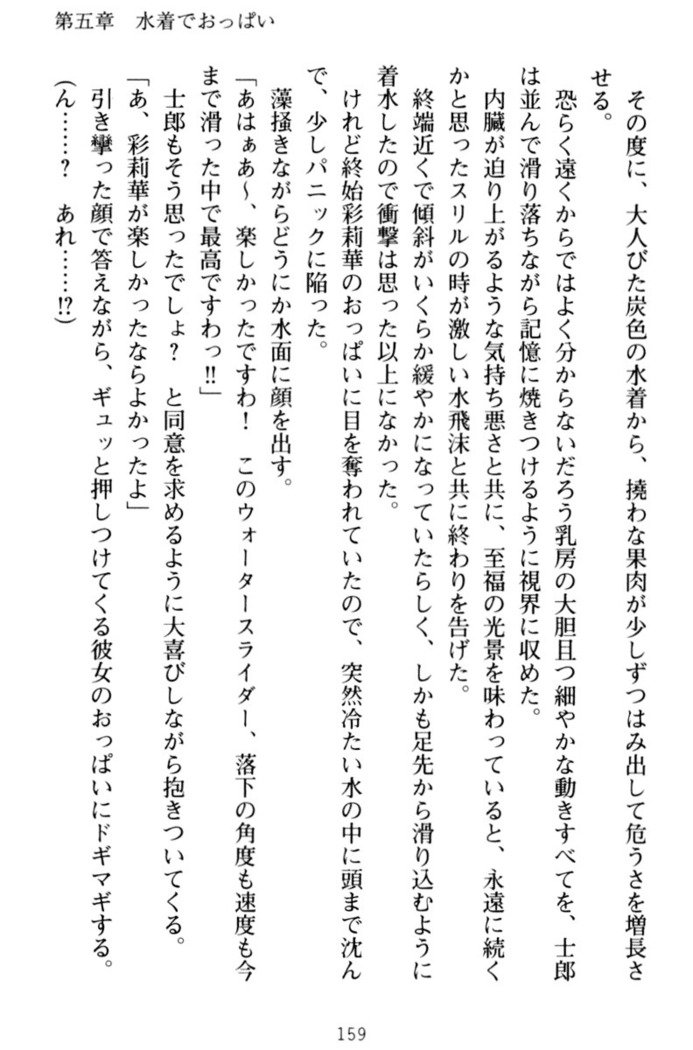 第五章　水着でおっぱい
その度に、大人びた炭色の水着から、撓わな果肉が少しずつはみ出して危うさを増長さ
せる。
恐らく遠くからではよく分からないだろう乳房の大胆且つ細やかな動きすべてを、士郎
は並んで滑り落ちながら記憶に焼きつけるように視界に収めた。
内臓が迫り上がるような気持ち悪さと共に、至福の光景を味わっていると、永遠に続く
かと思ったスリルの時が激しい水飛沫と共に終わりを告げた。
終端近くで傾斜がいくらか緩やかになっていたらしく、しかも足先から滑り込むように
着水したので衝撃は思った以上になかった。
けれど終始彩莉華のおっぱいに目を奪われていたので、突然冷たい水の中に頭まで沈ん
で、少しパニックに陥った。
藻掻きながらどうにか水面に顔を出す。
「あはぁあ〜、楽しかったですわ！　このウォータースライダー、落下の角度も速度も今
まで滑った中で最高ですわっ!!」
士郎もそう思ったでしょ？　と同意を求めるように大喜びしながら抱きついてくる。
「あ、彩莉華が楽しかったならよかったよ」
引き攣った顔で答えながら、ギュッと押しつけてくる彼女のおっぱいにドギマギする。
(ん……？　あれ……!?)
159